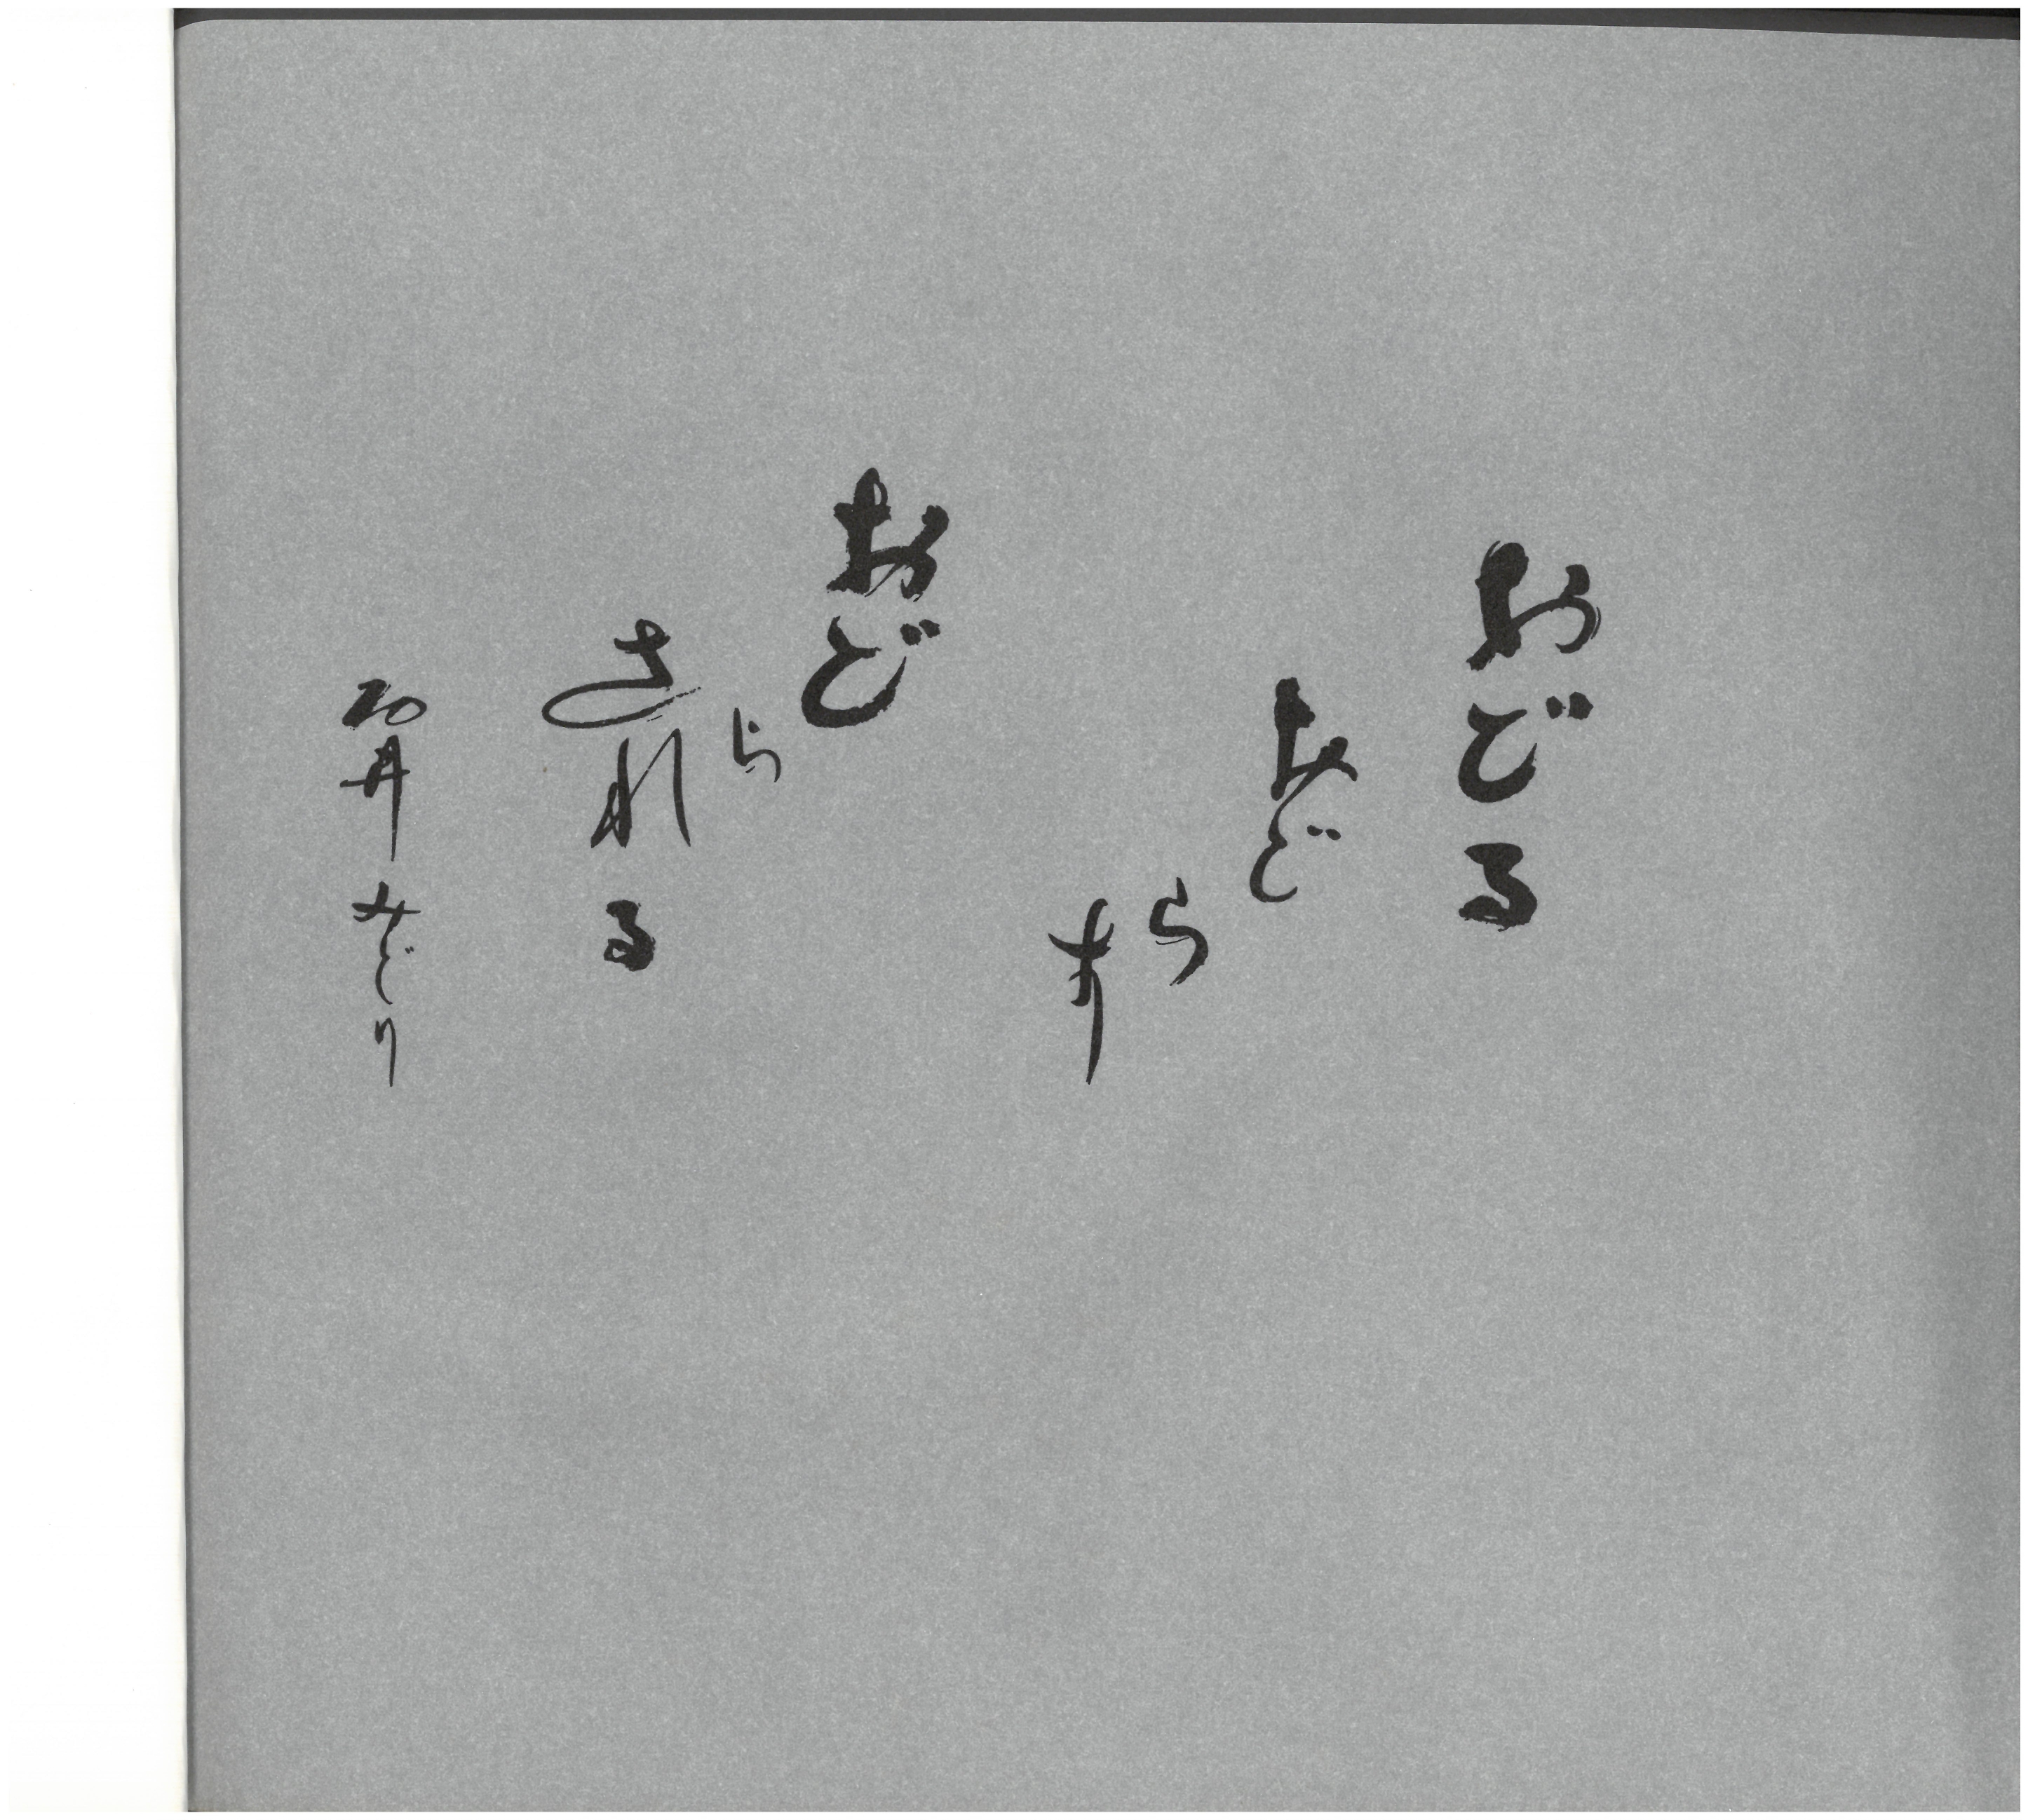 おどる
おどらす
おどらされる
石井みどり